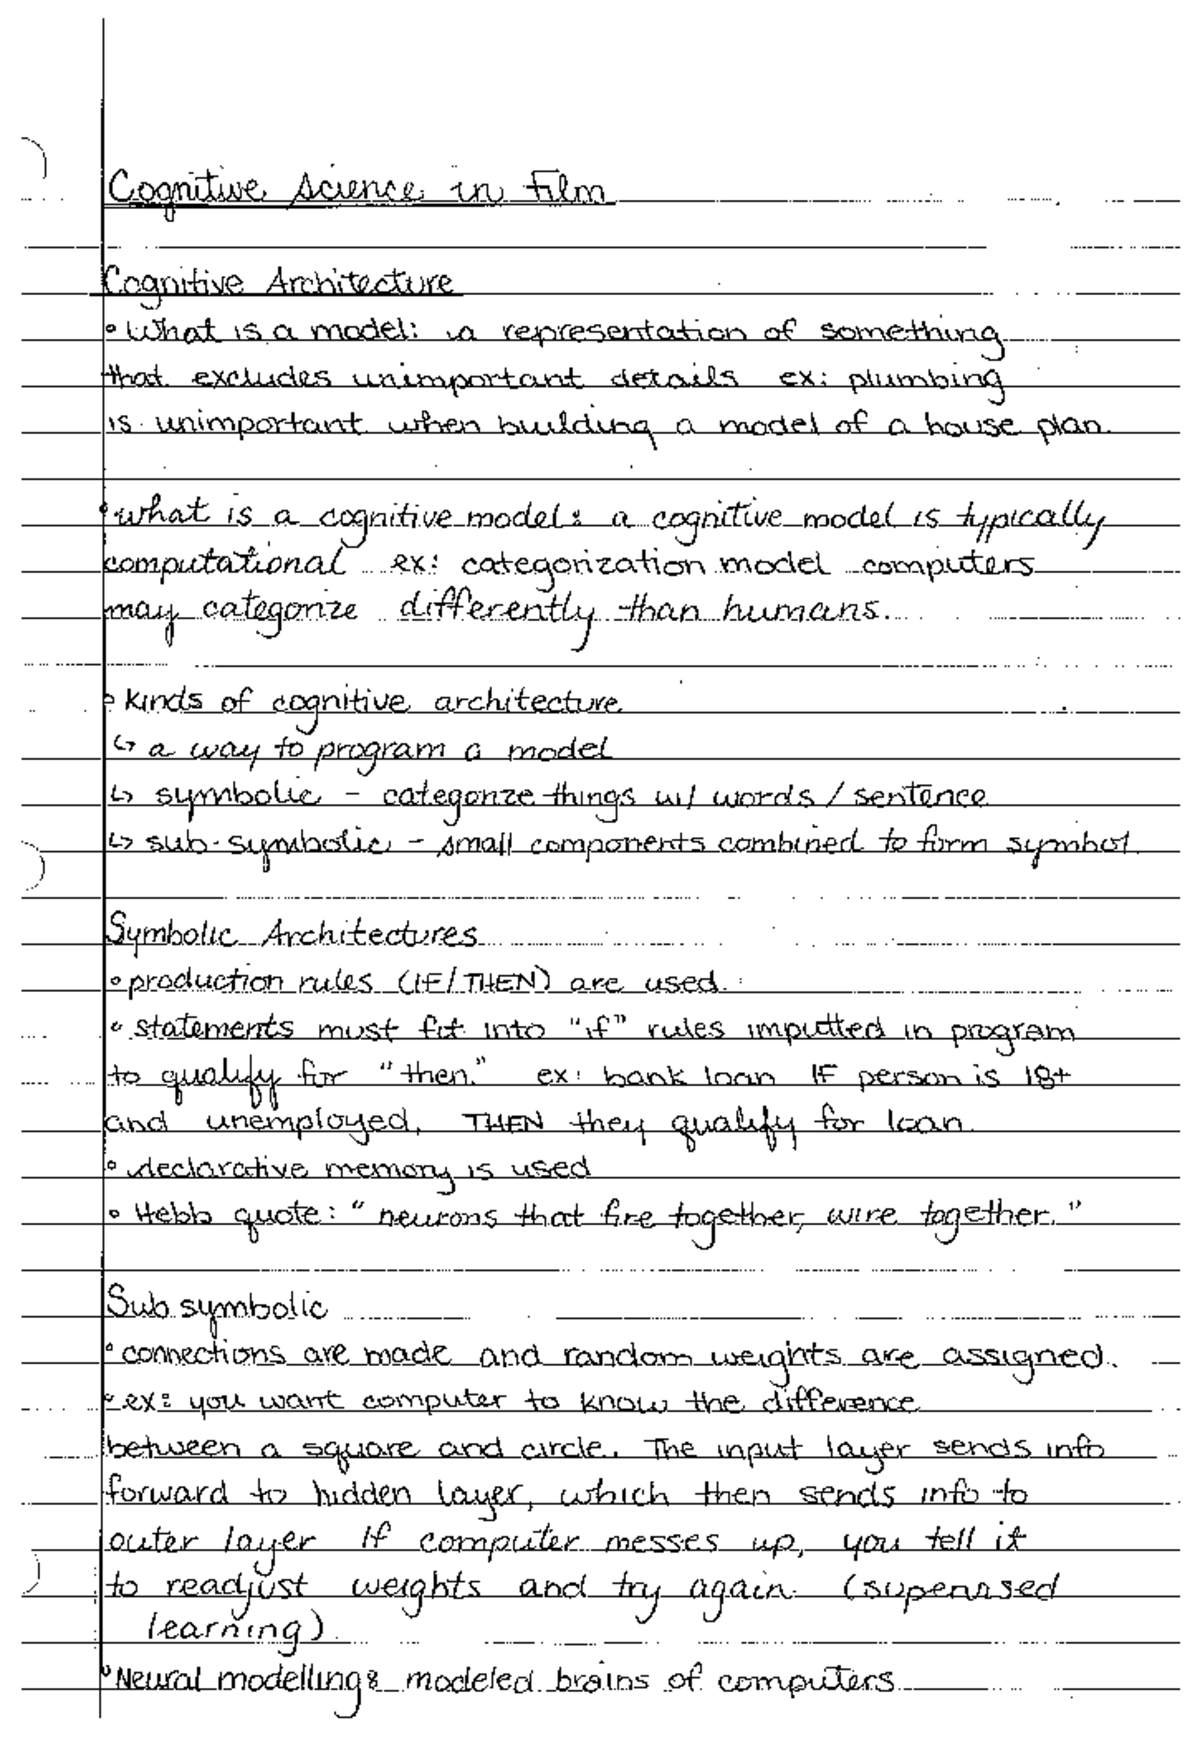 Cognitive Science in Film
Cognitive Architecture
• What is a model: a representation of something
that excludes unimportant details ex: plumbing
is unimportant when building a model of a house plan.
• what is a cognitive model: a cognitive model is typically
computational ex: categorization model computers
may categorize differently than humans.
• Kinds of cognitive architecture
↳ a way to program a model
↳ symbolic - categorize things w/ words / sentence
↳ sub-symbolic - small components combined to form symbol.
Symbolic Architectures
• production rules (IF/THEN) are used.
• statements must fit into "if" rules imputted in program
to qualify for "then." ex: bank loan IF person is 18+
and unemployed, THEN they qualify for loan.
• declarative memory is used
• Hebb quote: "neurons that fire together, wire together."
Sub symbolic
• connections are made and random weights are assigned.
• ex: you want computer to know the difference
between a square and circle. The input layer sends info
forward to hidden layer, which then sends info to
outer layer If computer messes up, you tell it
to readjust weights and try again. (supervised
learning)
• Neural modelling: modeled brains of computers